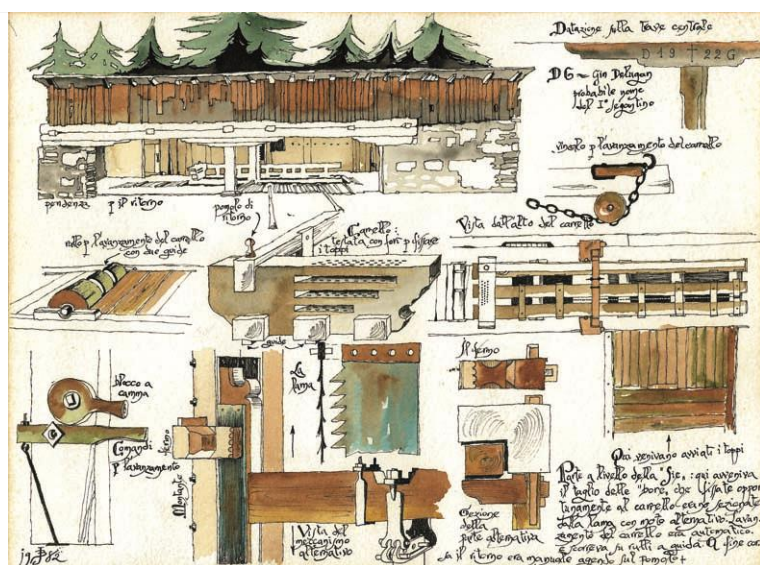 Datazione sulla trave centrale
D 19 † 22 G
DG ~ Gio Delugan
probabile nome
del I° segantino
vincolo p l'avanzamento del carrello
pendenza p il ritorno
pomolo di
ritorno
rullo p l'avanzamento del carrello
con due guide
Carrello:
testata con fori p fissare
i toppi
Vista dall'alto del carrello
guide
blocco a
camma
Comandi
p l'avanzamento
fermo
Montante
La
lama
Il fermo
Vista del
meccanismo
alternativo
Sezione
della
parte alternativa
Qua venivano avviati i toppi
Parte a livello della "Sie„: qui avveniva
il taglio delle "bore, che fissate oppor
tunamente al carrello erano sezionate
dalla lama con moto alternativo. L'avan
zamento del carrello era automatico.
E scorreva su rulli a guida. A fine cor
sa il ritorno era manuale agendo sul pomolo +